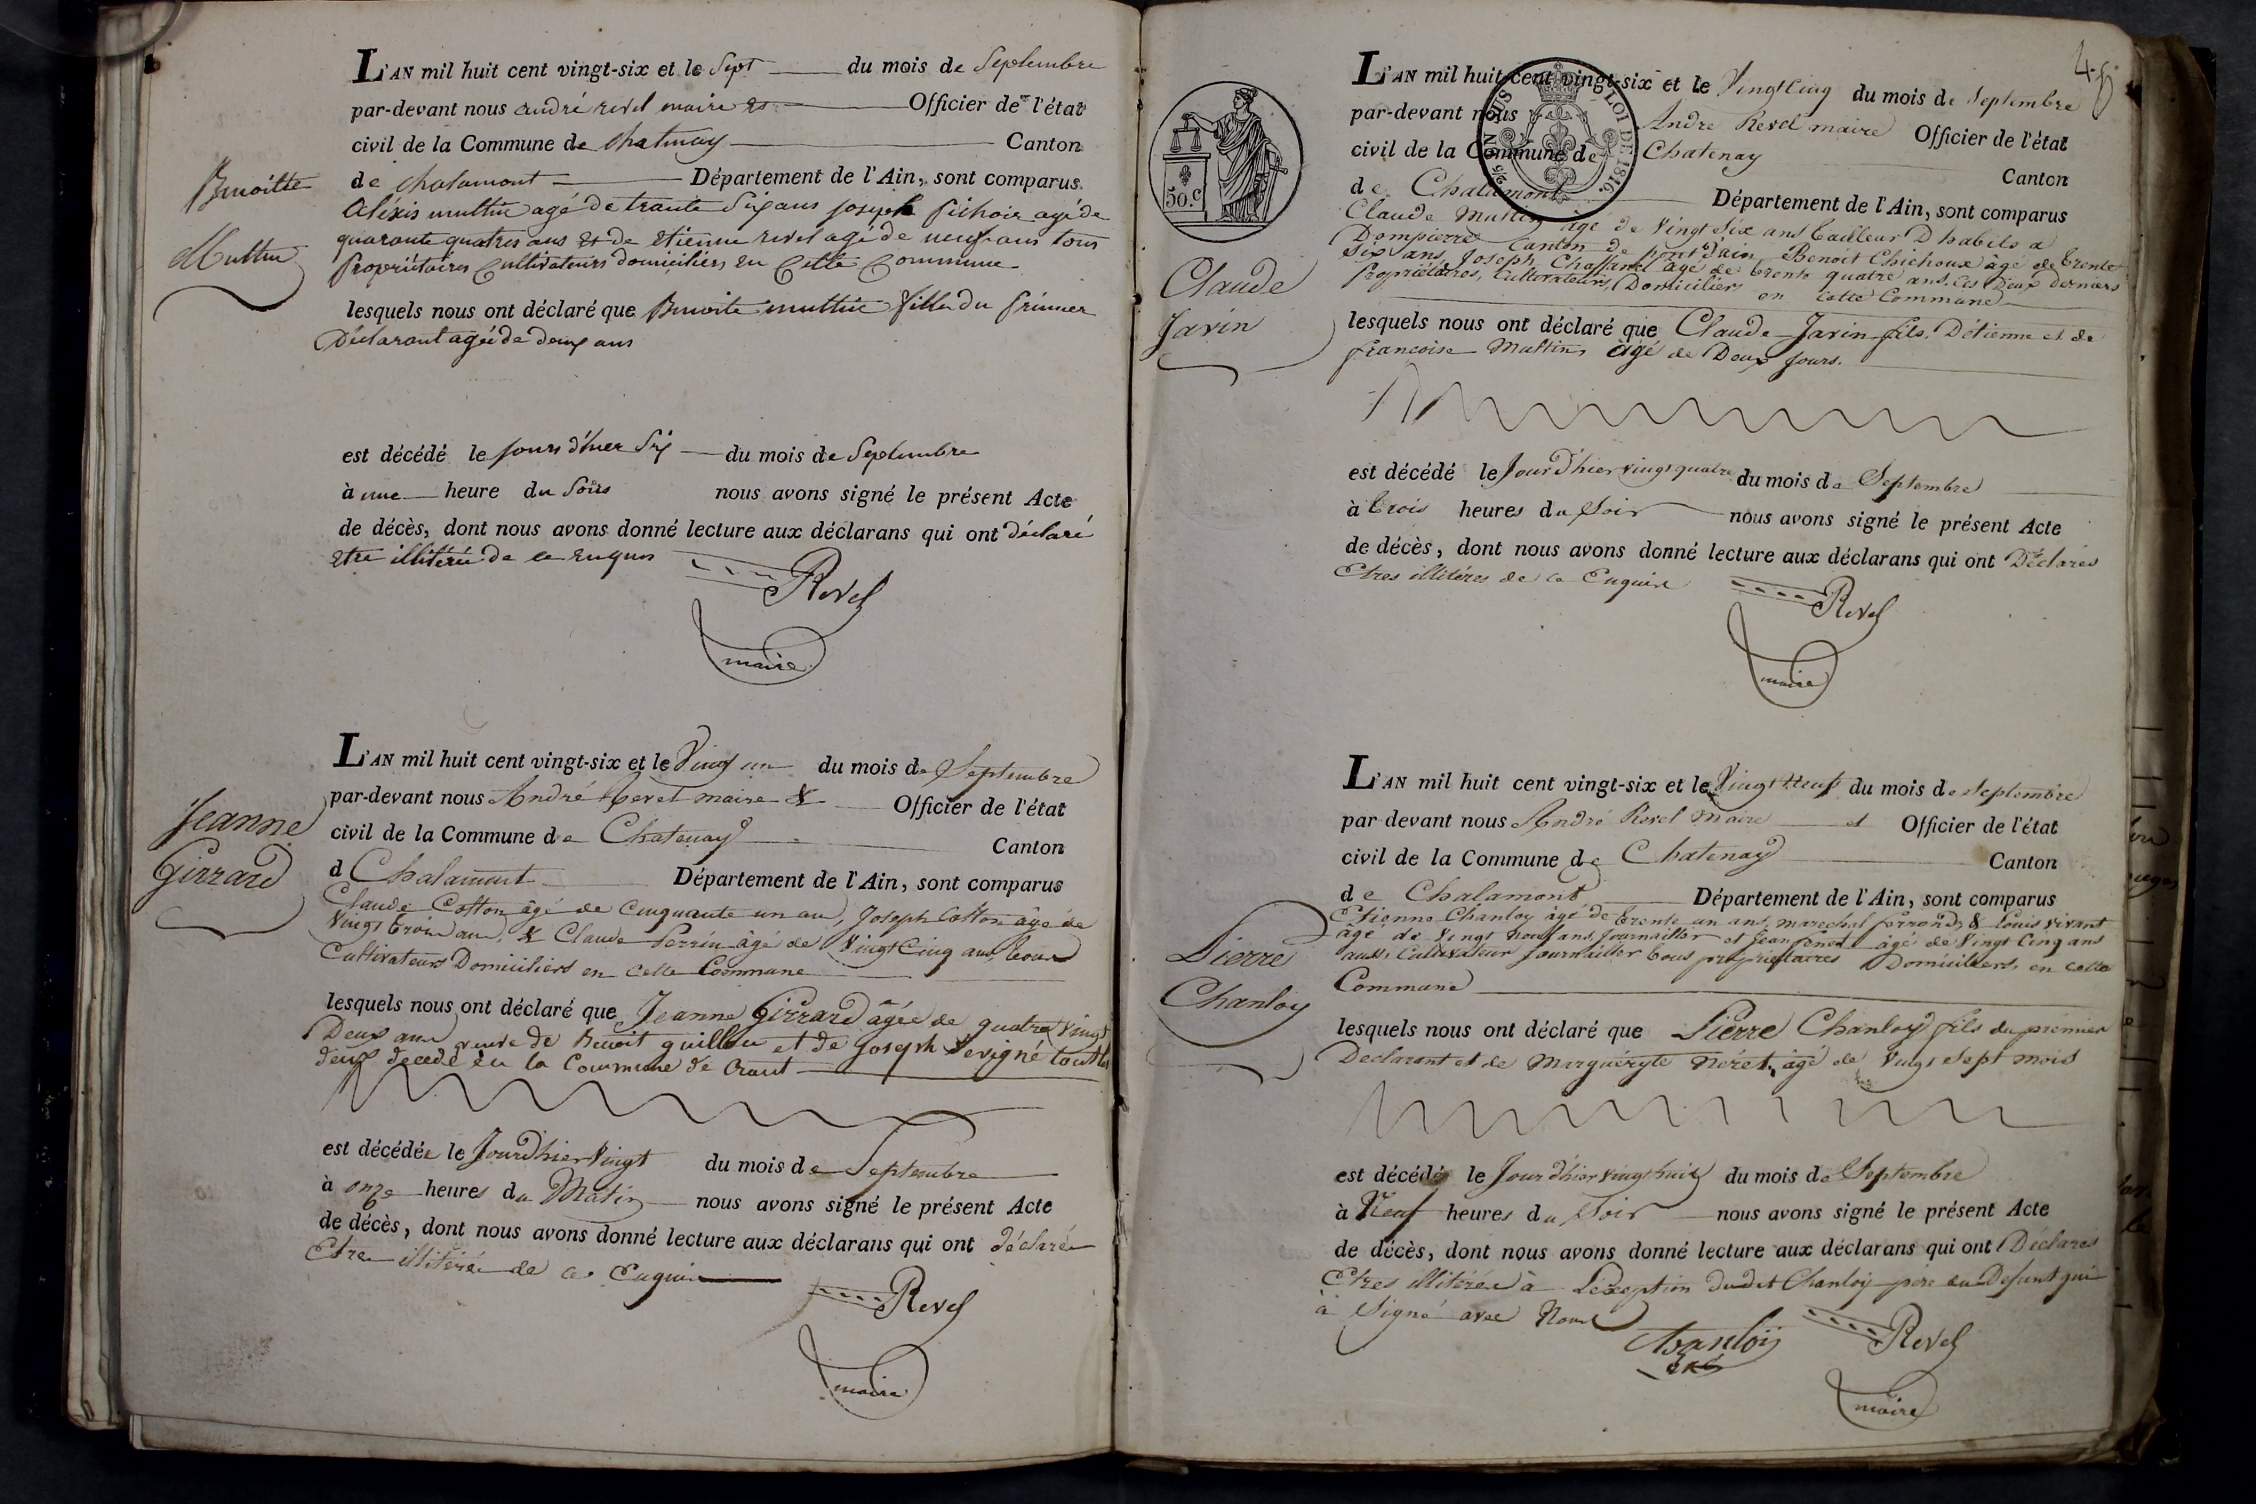 Benoitte
Muttin
L'AN mil huit cent vingt-six et le Sept du mois de Septembre
par-devant nous andré revel maire et Officier de l'état
civil de la Commune de Chatenay Canton
de Chalamont Département de l'Ain, sont comparus
Aléxis muttin agé de trante Six ans joseph fichoix agé de
quarante quatres ans et de etienne revel agé de neuf ans tous
propriétaires Cultivateurs domiciliers en Cette Commune
lesquels nous ont déclaré que Benoite muttin fille du prémier
Déclarant agée de deux ans
est décédé le jours d'hier Six du mois de Septembre
à une heure du Soirs nous avons signé le présent Acte
de décès, dont nous avons donné lecture aux déclarans qui ont déclaré
etre illitéré de ce enquis
Revel
maire
Jeanne
Girrard
L'AN mil huit cent vingt-six et le Vingt un du mois de Septembre
par-devant nous André Revel maire & Officier de l'état
civil de la Commune de Chatenay Canton
d Chalamont Département de l'Ain, sont comparus
Claude Cotton âgé de Cinquante un an, Joseph Cotton âgé de
Vingt trois ans, & Claude Perrin âgé de Vingt Cinq ans, tous
Cultivateurs Domiciliers en cette Commune
lesquels nous ont déclaré que Jeanne Girrard âgée de quatre Vingt
Deux ans veuve de Benoit guillon et de Joseph Sevigné tout les
deux décédé en la Commune de Crant
est décédée le Jour D'hier Vingt du mois de Septembre
à onze heures du Matin nous avons signé le présent Acte
de décès, dont nous avons donné lecture aux déclarans qui ont déclarée
Etre illitérée de ce Enquis
Revel
maire
45
25 EN SUS LOI DE 1816.
50.C
Claude
Javin
L'AN mil huit cent vingt-six et le Vingt Cinq du mois de Septembre
par-devant nous André Revel maire Officier de l'état
civil de la Commune de Chatenay Canton
de Chalamont Département de l'Ain, sont comparus
Claude Muttin âgé de Vingt Six ans tailleur D'habits a
Dompierre Canton de pont D'ain, Benoit Chichoux âgé de trente
Six ans, Joseph Chassanel âgé de trente quatre ans. Ces Deux derniers
Propriétaires, Cultivateurs, Domiciliers en Cette Commune
lesquels nous ont déclaré que Claude Javin fils D'étienne et de
francoise Muttin, âgé de Deux Jours.
est décédé le Jour D'hier vingt quatre du mois de Septembre
à trois heures du Soir nous avons signé le présent Acte
de décès, dont nous avons donné lecture aux déclarans qui ont Déclarés
Etres illitéres de ce Enquis
Revel
maire
Pierre
Chanloy
L'AN mil huit cent vingt-six et le Vingt Neuf du mois de Septembre
par devant nous André Revel Maire et Officier de l'état
civil de la Commune de Chatenay Canton
de Chalamont Département de l'Ain, sont comparus
Etienne Chanloy âgé de trente un ans, marechal ferrand, & Louis vivant
âgé de Vingt neuf ans, Journallier et Jean fenet âgé de Vingt Cinq ans
aussi Cultivateur Journallier tous proprietaires Domiciliers en cette
Commune
lesquels nous ont déclaré que Pierre Chanloy fils du prémier
Declarant et de Marguéryte Néret, âgé de Vingt Sept mois
est décédé le Jour d'hier vingt huit du mois de Septembre
à Neuf heures du Soir nous avons signé le présent Acte
de décès, dont nous avons donné lecture aux déclarans qui ont Déclarés
Etres illitérée à L'éxeption Dudit Chanloy père du Defunt qui
à Signé avec Nous
Chanloy
Revel
maire